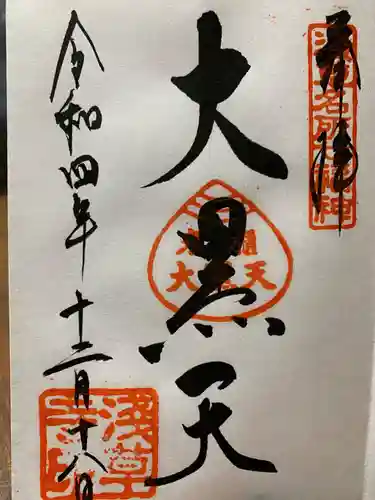 奉拝
浅草名所七福神
大黒天
令和四年十二月十八日
浅草寺印